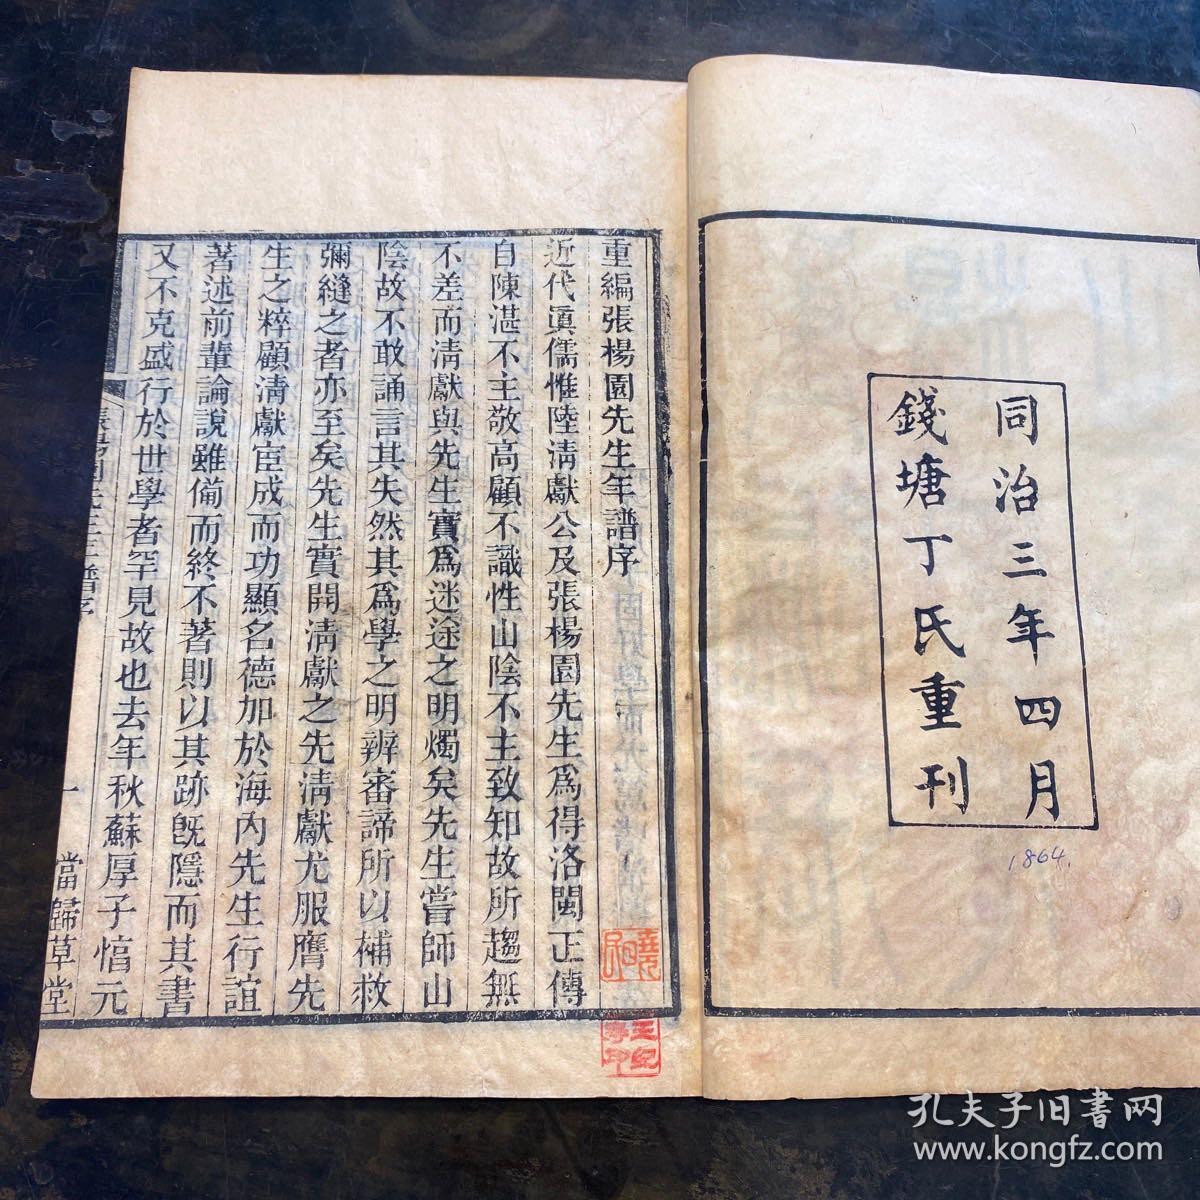 同治三年四月
錢塘丁氏重刊
1864.
重編張楊園先生年譜序
近代眞儒惟陸淸獻公及張楊園先生爲得洛閩正傳
自陳湛不主敬高顧不識性山陰不主致知故所趨無
不差而淸獻與先生實爲迷途之明燭矣先生嘗師山
陰故不敢誦言其失然其爲學之明辨審諦所以補救
彌縫之者亦至矣先生實開淸獻之先淸獻尤服膺先
生之粹顧淸獻宦成而功顯名德加於海內先生行誼
著述前輩論說雖備而終不著則以其跡旣隱而其書
又不克盛行於世學者罕見故也去年秋蘇厚子惇元
一
當歸草堂
孔夫子旧书网
www.kongfz.com